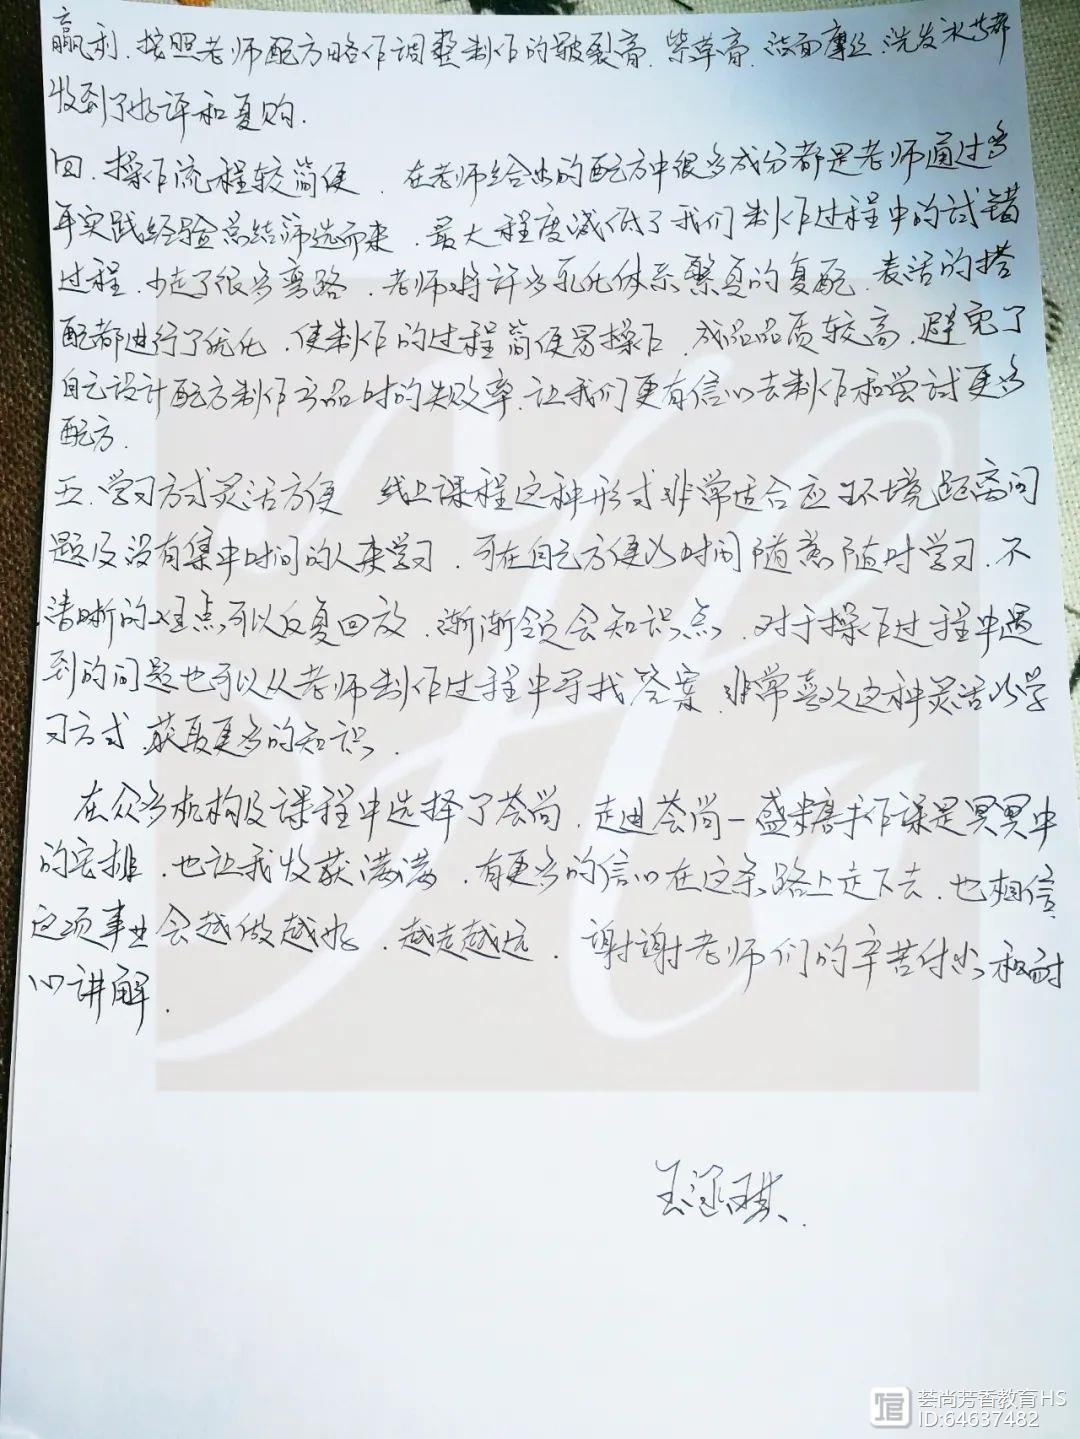 赢利、按照老师配方略作调整制作的皲裂膏、紫草膏、洁面摩丝、洗发水等都
收到了好评和复购.
四、操作流程较简便、在老师给出的配方中很多成分都是老师通过多
年实践经验总结筛选而来、最大程度减低了我们制作过程中的试错
过程、少走了很多弯路、老师将许多乳化体系繁复的复配、表活的搭
配都进行了优化、使制作的过程简便易操作、成品品质较高、避免了
自己设计配方制作产品时的失败率、让我们更有信心去制作和尝试更多
配方.
五、学习方式灵活方便 线上课程这种形式非常适合应环境距离问
题及没有集中时间的人来学习、可在自己方便的时间随意随时学习、不
清晰的难点可以反复回放、渐渐领会知识点、对于操作过程中遇
到的问题也可以从老师制作过程中寻找答案、非常喜欢这种灵活的学
习方式、获取更多的知识.
在众多机构及课程中选择了荟尚、走进荟尚一盛糖手作课是冥冥中
的安排、也让我收获满满、有更多的信心在这条路上走下去、也相信
这项事业会越做越好、越走越远、谢谢老师们的辛苦付出和耐
心讲解.
王琪.
荟尚芳香教育HS
ID:64637482